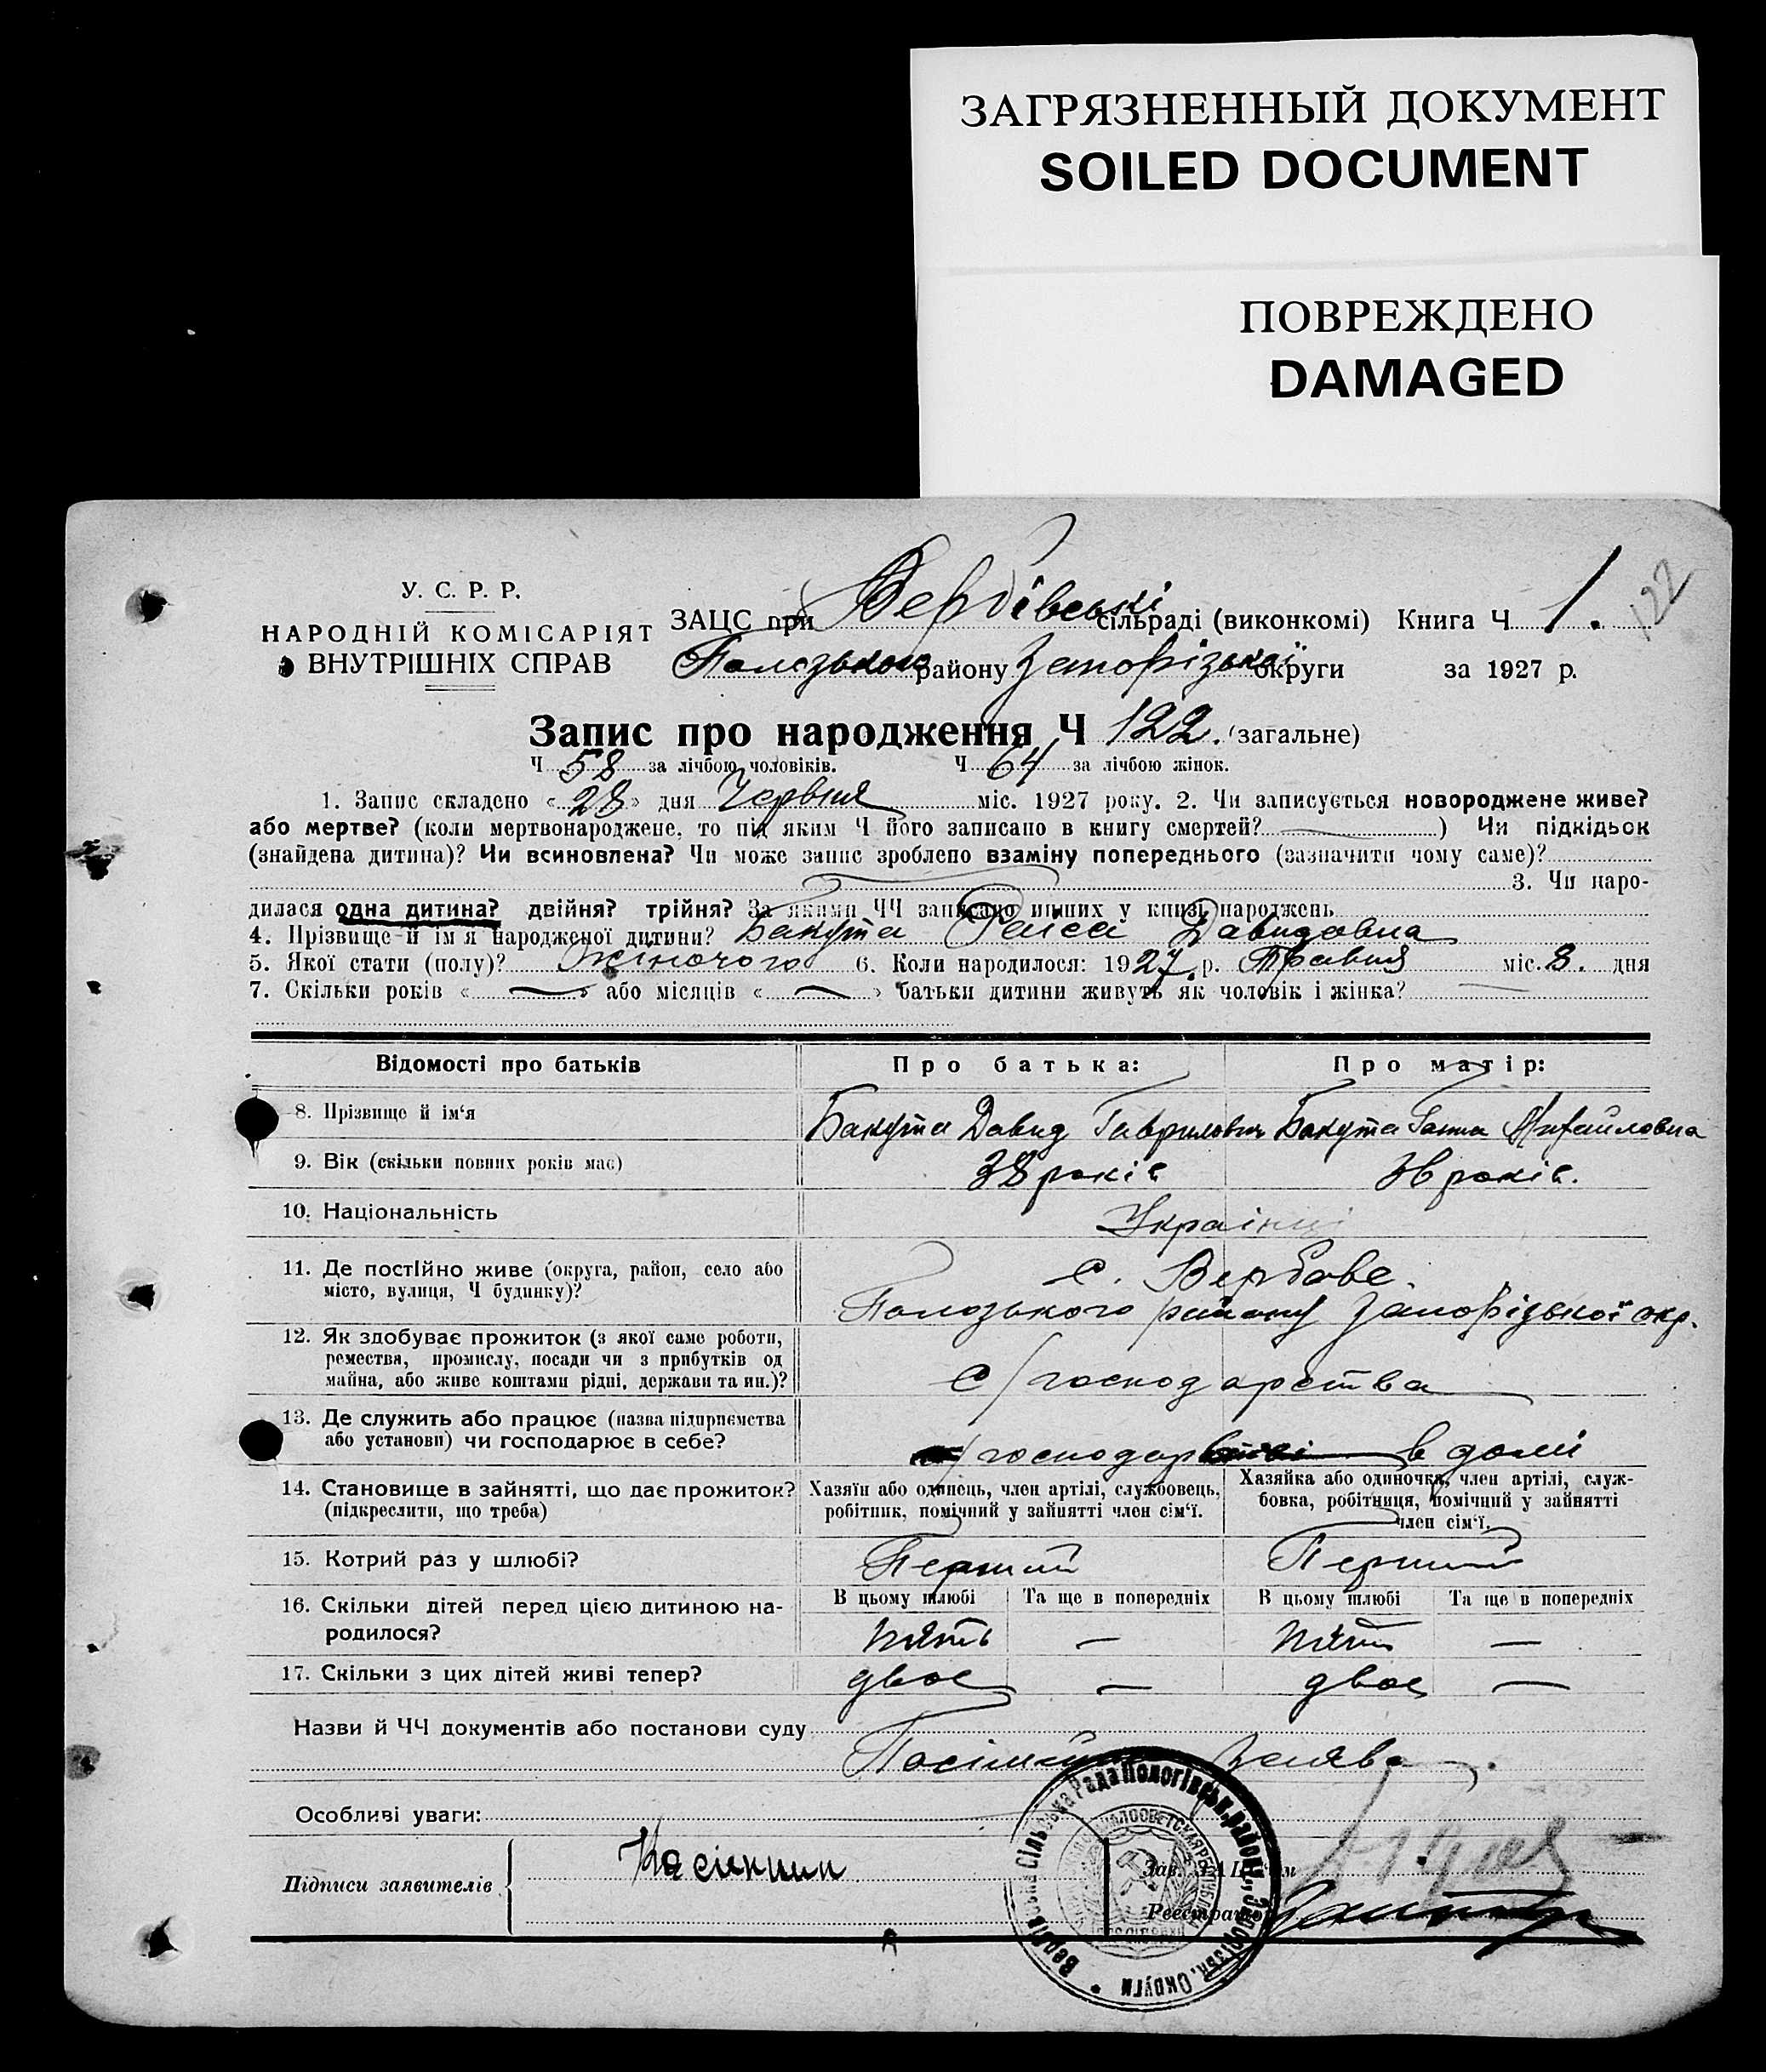 ЗАГРЯЗНЕННЫЙ ДОКУМЕНТ
SOILED DOCUMENT
ПОВРЕЖДЕНО
DAMAGED
122
У. С. Р. Р.
НАРОДНІЙ КОМІСАРІЯТ
ВНУТРІШНІХ СПРАВ
ЗАЦС при Вербівські сільраді (виконкомі) Книга Ч 1.
району Запорізької округи за 1927 р.
Запис про народження Ч 122. (загальне)
Ч 58 за лічбою чоловіків. Ч 64 за лічбою жінок.
1. Запис складено « 28 » дня Червня міс. 1927 року. 2. Чи записується новороджене живе?
або мертве? (коли мертвонароджене, то під яким Ч його записано в книгу смертей? ) Чи підкідьок
(знайдена дитина)? Чи всиновлена? Чи може запис зроблено взаміну попереднього (зазначити чому саме)?
3. Чи наро-
дилася одна дитина? двійня? трійня? За якими ЧЧ записано инших у книзі народжень
4. Прізвище й ім'я народженої дитини? Бакута Раїса Давидовна
5. Якої стати (полу)? Жіночого 6. Коли народилося: 1927. р. Травня міс. 8. дня
7. Скільки років « » або місяців « » батьки дитини живуть як чоловік і жінка?
Відомості про батьків Про батька: Про матір:
8. Прізвище й ім'я Бакута Давид Гаврилович Бакута Ганна Михайловна
9. Вік (скільки повних років має) 38 років 36 років.
10. Національність Українці
11. Де постійно живе (округа, район, село або с. Вербове.
місто, вулиця, Ч будинку)? Пологського району Запорізької окр.
12. Як здобуває прожиток (з якої саме роботи,
ремества, промислу, посади чи з прибутків од
майна, або живе коштами рідні, держави та ин.)? с/господарства
13. Де служить або працює (назва підприємства
або установи) чи господарює в себе? в домі
14. Становище в зайнятті, що дає прожиток? Хазяїн або одинець, член артілі, службовець, Хазяйка або одиночка, член артілі, служ-
(підкреслити, що треба) робітник, помічний у зайнятті член сім'ї. бовка, робітниця, помічний у зайнятті
член сім'ї.
15. Котрий раз у шлюбі? Перший Перший
16. Скільки дітей перед цією дитиною на- В цьому шлюбі Та ще в попередніх В цьому шлюбі Та ще в попередніх
родилося? пять — пять —
17. Скільки з цих дітей живі тепер? двое — двое —
Назви й ЧЧ документів або постанови суду
заява
Особливі уваги:
Підписи заявителів
Зав. ЗАЦС'ом
Реєстратор
Вербівська Сільська Рада Пологівськ. району, Запорізьк. Округи